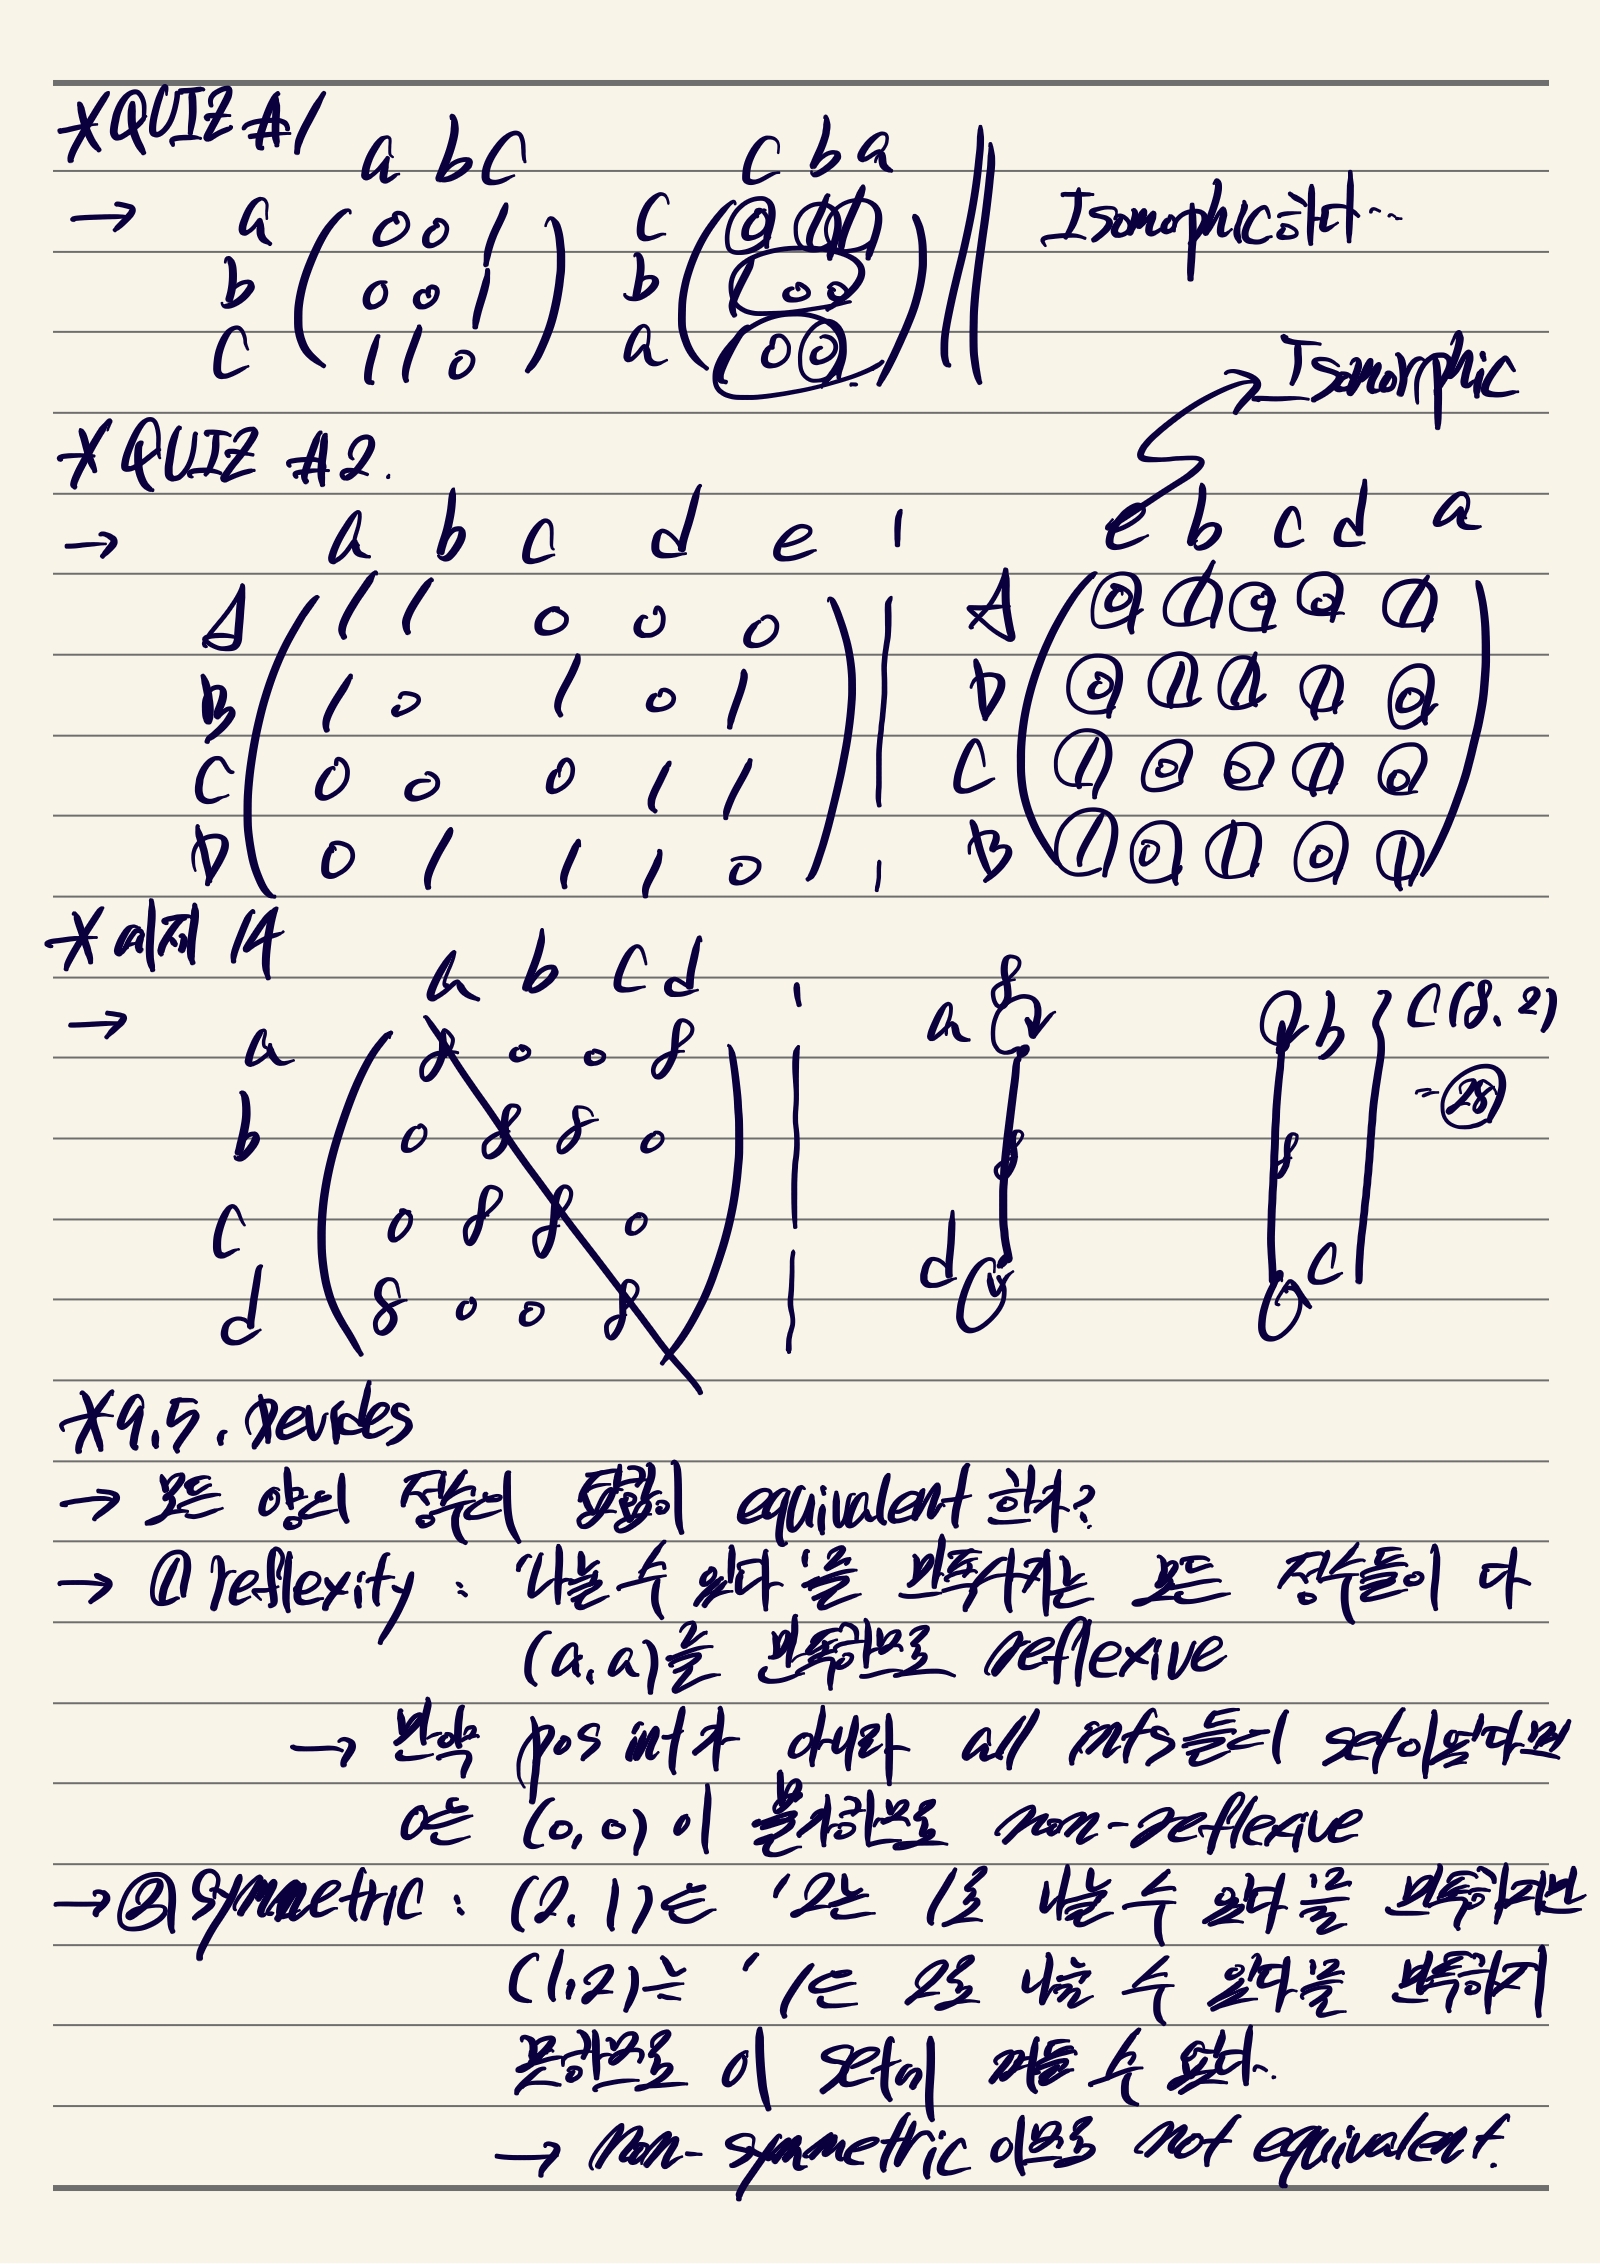 *QUIZ #1
a b c   c b a
→ a ( 0 0 1 )   c ( 0 1 1 )   Isomorphic하다...
b 0 0 1   b 1 0 0
c 1 1 0   a 1 0 0
Isomorphic
*QUIZ #2.
→ a b c d e   e b c d a
A 1 1 0 0 0   A 0 1 0 0 1
B 1 0 1 0 1   D 0 1 1 1 0
C 0 0 0 1 1   C 1 0 0 1 0
D 0 1 1 1 0   B 1 0 1 0 1
*예제 14
→ a b c d
a 8 0 0 8   a 8   b   C(8, 2)
b 0 8 8 0   8   8   = 28
c 0 8 8 0
d 8 0 0 8   d   c
*9.5.
→ 모든 양의 정수의 equivalent 한가?
→ ① reflexity : '나눌 수 있다'를 만족시키는 모든 정수들이 다
(a, a)를 만족함으로 reflexive
→ 만약 pos int가 아니라 all ints들의 set이었다면
0은 (0, 0) 이 불가함으로 non-reflexive
→ ② Symmetric : (2, 1)은 '2는 1로 나눌 수 있다'를 만족하지만
(1, 2)는 '1은 2로 나눌 수 있다'를 만족하지
못함으로 이 set에 껴들 수 없다.
→ non-symmetric 이므로 not equivalent.